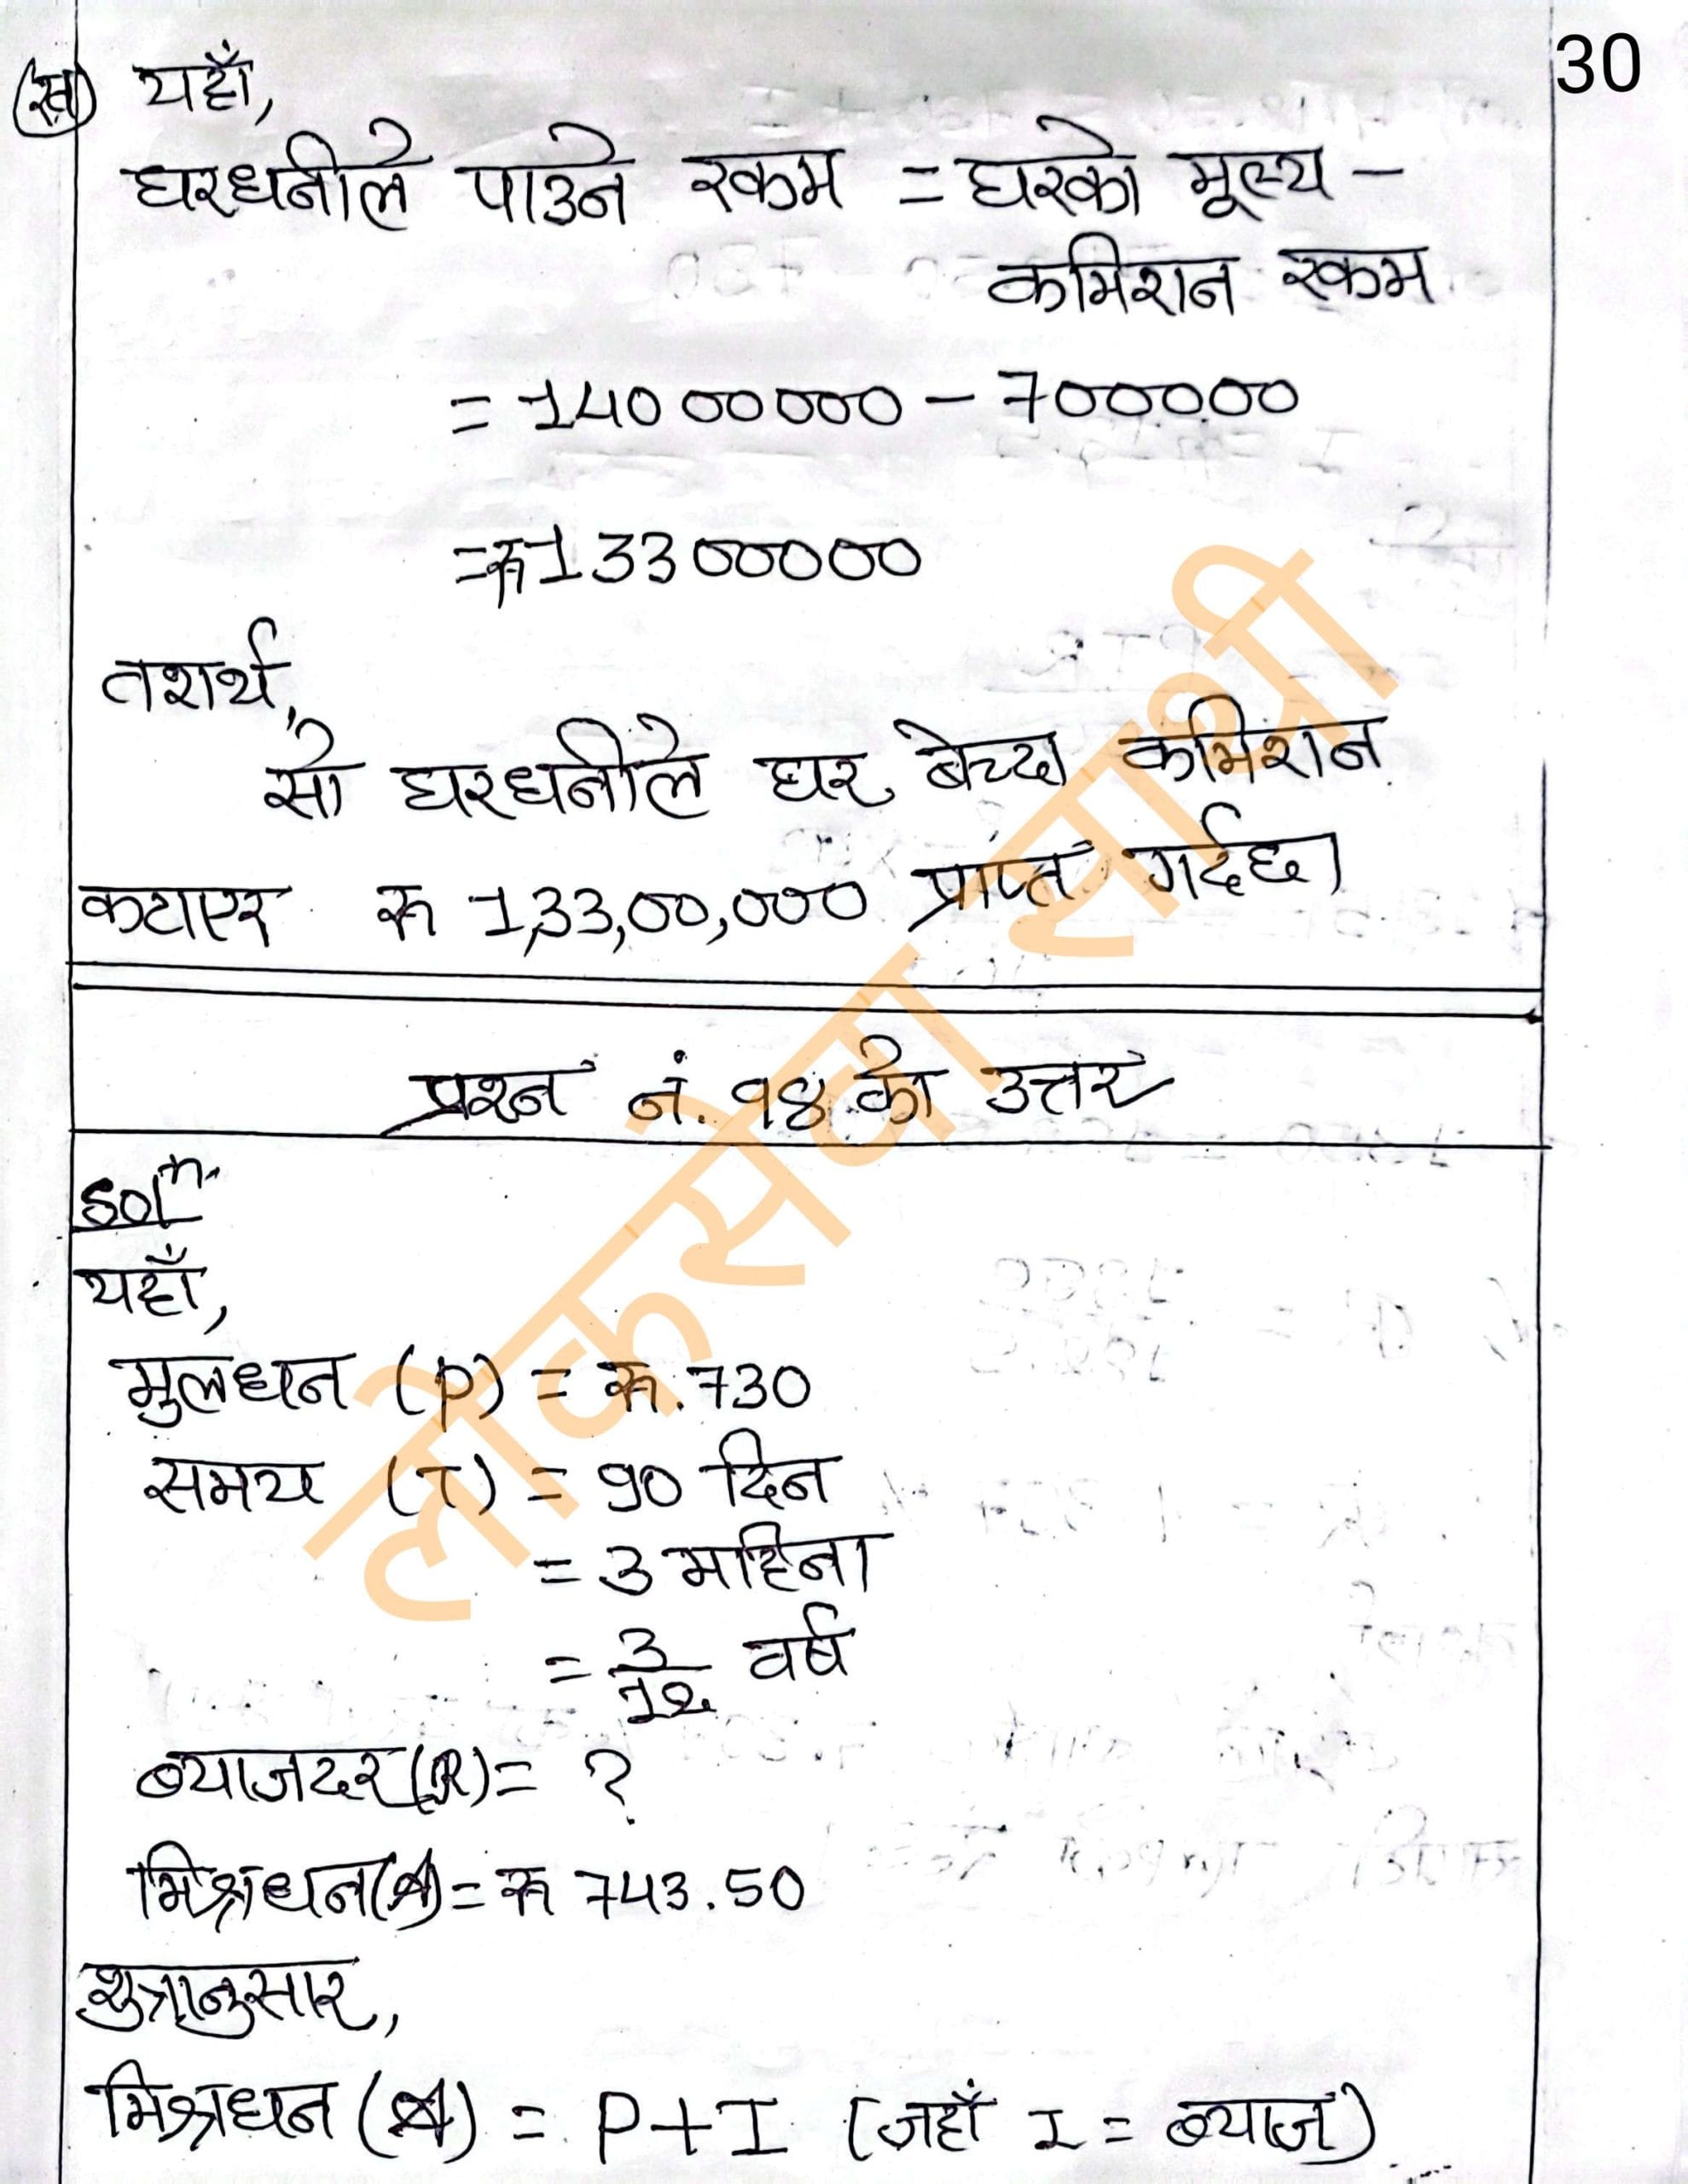 30
(ख) यहाँ,
घरधनीले पाउने रकम = घरको मूल्य -
कमिशन रकम
= 14000000 - 700000
= रु 13300000
तशर्थ,
सो घरधनीले घर बेच्दा कमिशन
कटाएर रु 1,33,00,000 प्राप्त गर्दछ।
प्रश्न नं. १४ को उत्तर
solⁿ.
यहाँ,
मुलधन (P) = रु. 730
समय (T) = 90 दिन
= 3 महिना
= 3/12 वर्ष
ब्याजदर (R) = ?
मिश्रधन (A) = रु 743.50
शुत्रानुसार,
मिश्रधन (A) = P + I (जहाँ I = ब्याज)
लोकसेवा साथी